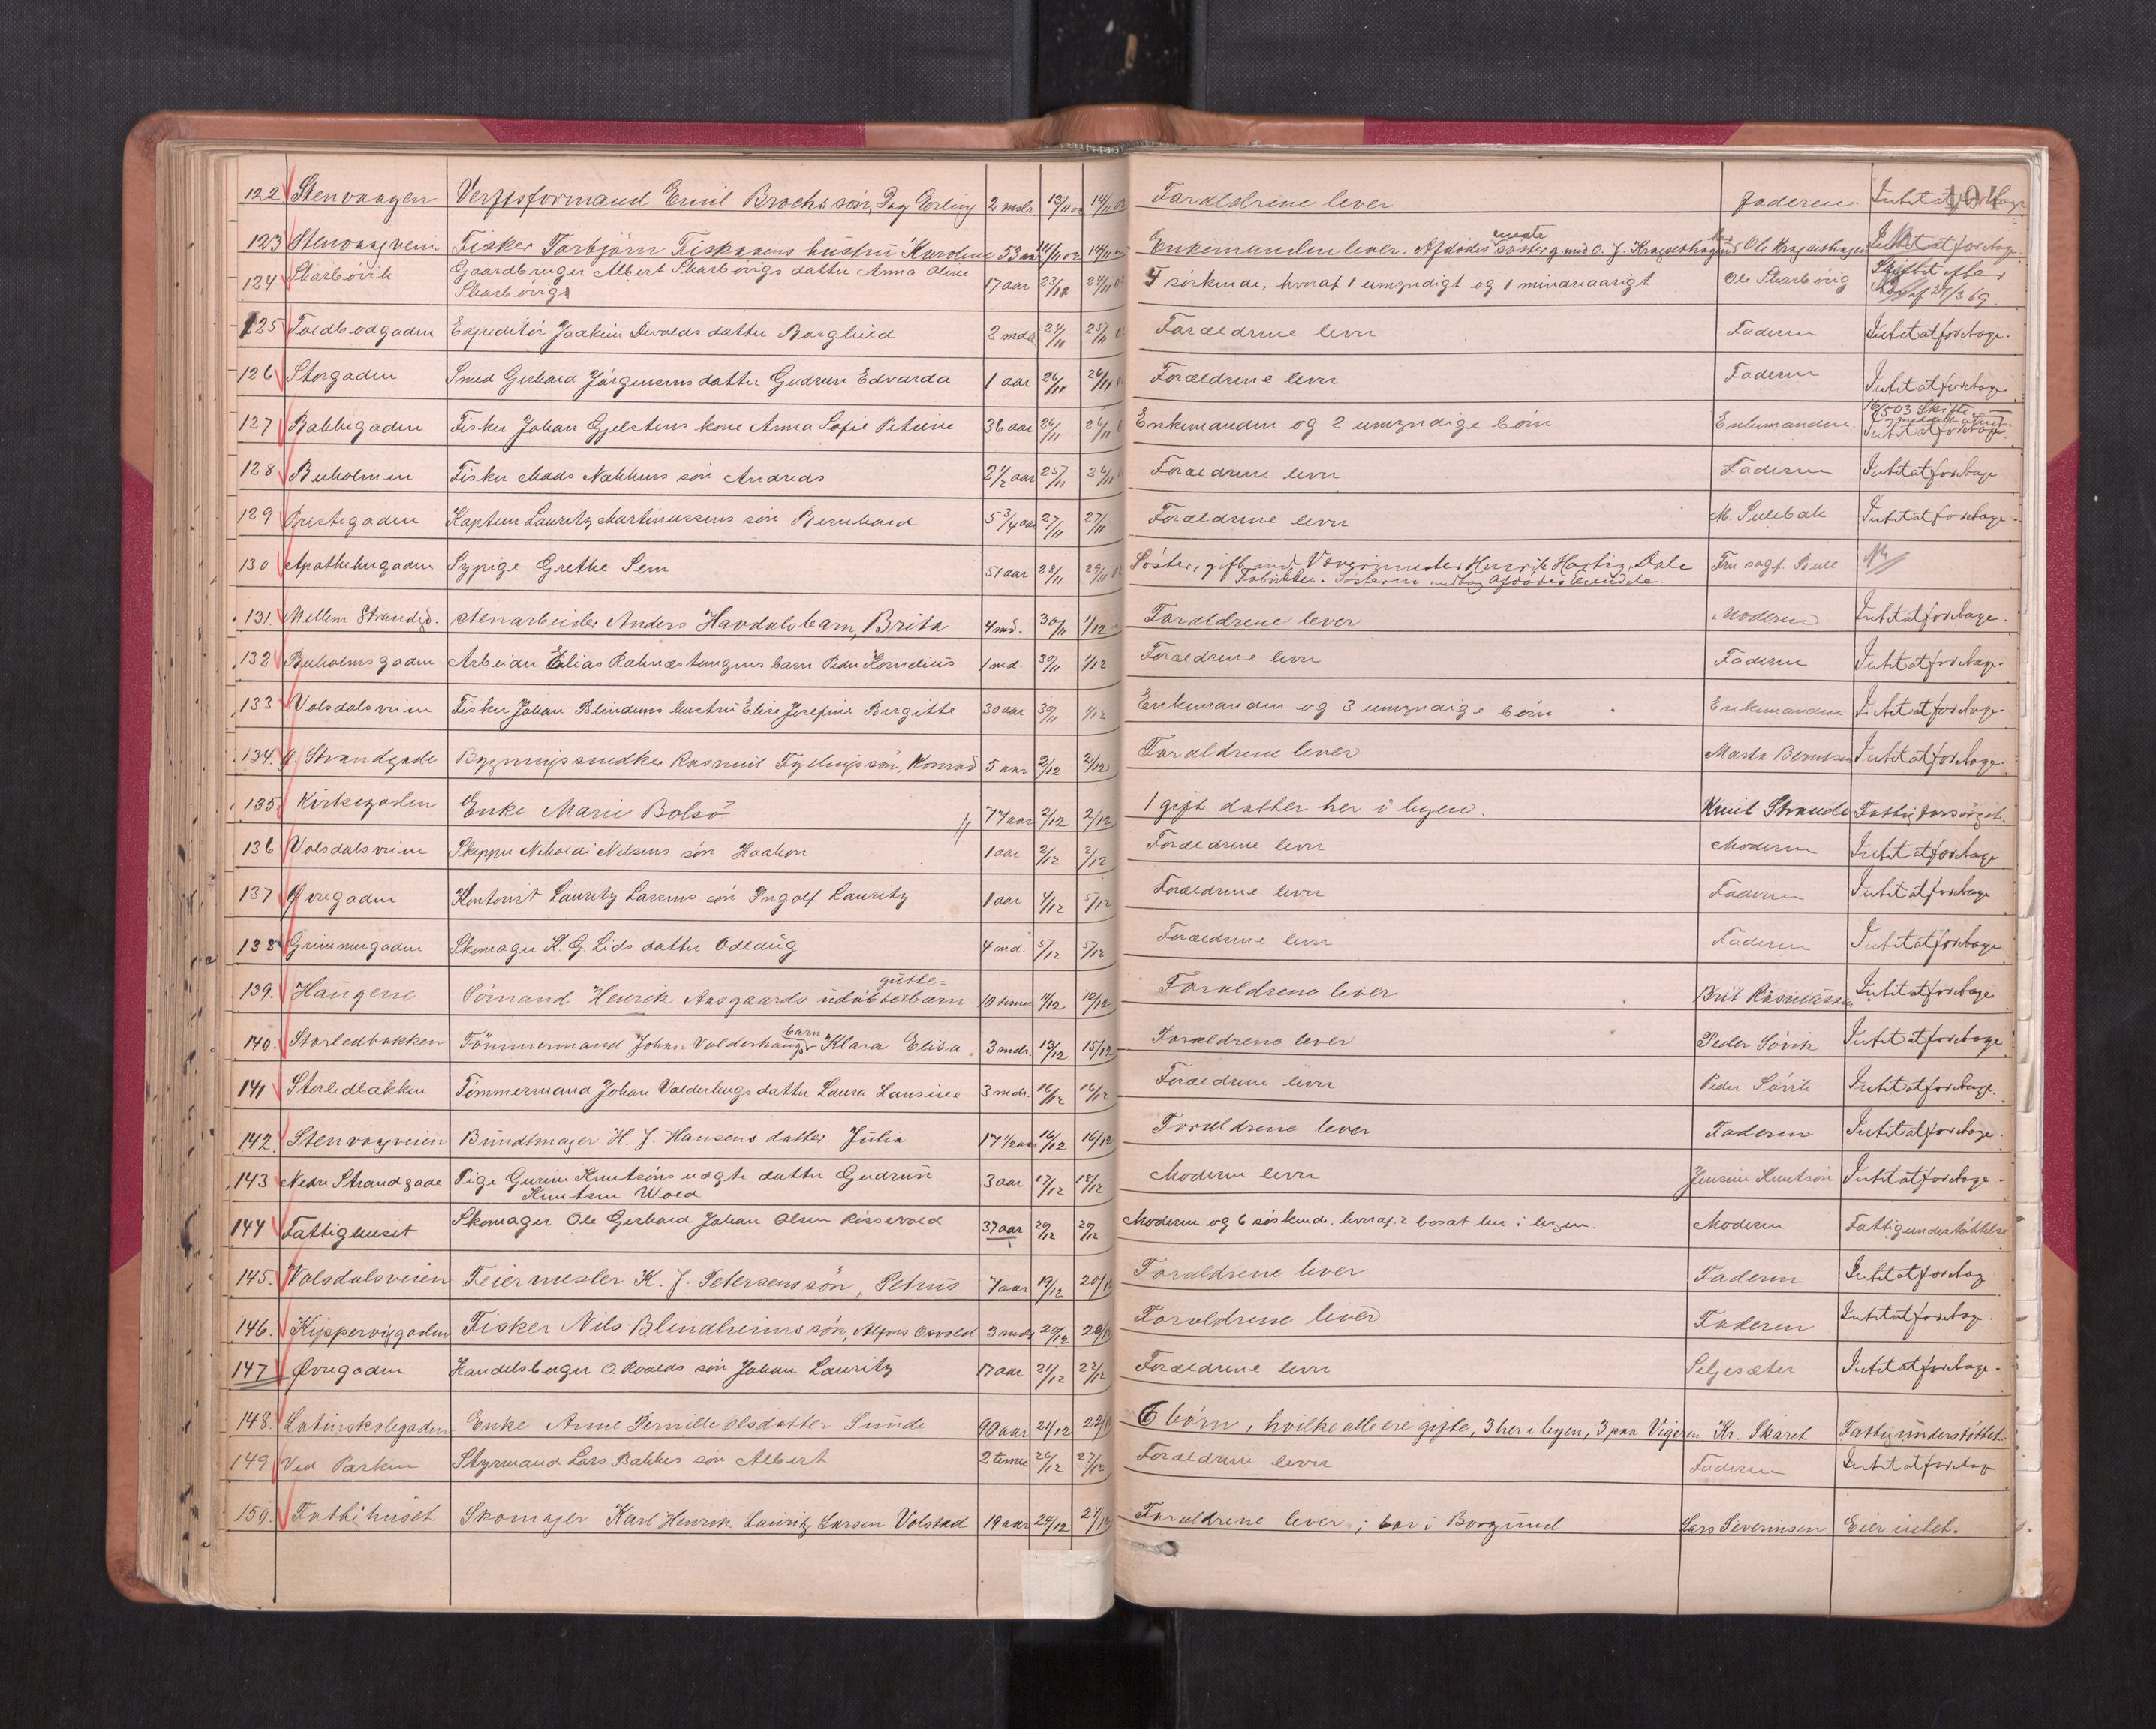 122 Stenvaagen Verftsformand Emil Brochs søn, Dag Erling 2 mdr 13/11 02 14/11 02 Forældrene lever Faderen. Intet at foretage
123 Stenvaagveien Fisker Torbjørn Fiskaaens hustru Karoline 53 aar /11 02 14/11 Enkemanden lever. Afdødes søster g. med O. J. Kragsethagen Ole Kragsethagen Intet at foretage
124 Skarbøvik Gaardbruger Albert Skarbøvigs datter Anna Oline 17 aar 23/11 24/11 4 søskende, hvoraf 1 umyndigt og 1 mindreaarigt Ole Skarbøvig Skiftet efter
Skarbøvig 27/3 69
125 Toldbodgaden Expeditør Joakim Devolds datter Borghild 2 mdr 24/11 25/11 Forældrene lever Faderen Intet at foretage.
126 Storgaden Smed Gerhard Jørgensens datter Gudrun Edvarda 1 aar 26/11 26/11 Forældrene lever Faderen Intet at foretage
127 Bakkegaden Fisker Johan Gjelstens kone Anna Sofie Petrine 36 aar 26/11 26/11 Enkemanden og 2 umyndige børn Enkemanden. 16/5 03 Skifte
Intet at foretage.
128 Buholmen Fisker Mads Nakkens søn Andreas 2 1/2 aar 25/11 26/11 Forældrene lever Faderen Intet at foretage
129 Prestegaden Kaptein Lauritz Martinussens søn Bernhard 5 3/4 aar 27/11 27/11 Forældrene lever M. Sulebak Intet at foretage.
130 Apothekergaden Sypige Grethe Sem 51 aar 28/11 29/11 Søster, gift med Værgsmester Henrik Hartvig, Dale
Fabrikker. Søsteren modtog afdødes eiendele. Fru sagf. Bull
131. Mellem Strandgd. Stenarbeider Anders Havdals barn, Brita 4 md. 30/11 1/12 Forældrene lever Moderen Intet at foretage.
132 Buholmsgaden Arbeider Elias Rabnæstangens barn Peder Kornelius 1 md. 30/11 1/12 Forældrene lever Faderen Intet at foretage.
133 Volsdalsveien Fisker Johan Blindems hustru Elise Josefine Birgitte 30 aar 30/11 1/12 Enkemanden og 3 umyndige børn Enkemanden Intet at foretage.
134. N. Strandgade Bygningssnedker Rasmus Fyllings søn, Konrad 5 aar 2/12 2/12 Forældrene lever Marta Berntsen Intet at foretage.
135. Kirkegaden Enke Marie Bolsø 77 aar 2/12 2/12 1 gift datter her i byen. Knut Strande Fattigforsørget.
136 Volsdalsveien Skipper Nikolai Nilsens søn Haakon 1 aar 2/12 2/12 Forældrene lever Moderen Intet at foretage
137 Øvregaden Kontorist Lauritz Larsens søn Ingolf Lauritz 1 aar 4/12 5/12 Forældrene lever Faderen Intet at foretage
138 Grimmergaden Skomager K. G. Lids datter Oddlaug 4 md. 5/12 5/12 Forældrene lever Faderen Intet at foretage
139. Haugene Sømand Henrik Aasgaards udøbte gutte=barn 10 timer 9/12 10/12 Forældrene lever Brit Rasmussen Intet at foretage
140. Storledbakken Tømmermand Johan Valderhaugs barn Klara Elisa 3 mdr. 13/12 15/12 Forældrene lever Peder Søvik Intet at foretage
141 Storledbakken Tømmermand Johan Valderhugs datter Laura Hansine 3 mdr. 16/12 16/12 Forældrene lever Peder Søvik Intet at foretage.
142. Stenvaagveien Bundtmager H. J. Hansens datter Julia 17 1/2 aar 16/12 16/12 Forældrene lever Faderen Intet at foretage.
143 Nedre Strandgade Pige Gurine Knutsøns uægte datter Gudrun 3 aar 17/12 18/12 Moderen lever Jensine Knutsøn Intet at foretage.
Knutsen Wold
144 Fattighuset Skomager Ole Gerhard Johan Olsen Rissevold 37 aar 20/12 20/12 Moderen og 6 søskende, hvoraf 2 bosat her i byen. Moderen Fattigunderstøttelse
145. Volsdalsveien Feiermester K. J. Petersens søn, Petrus 7 aar 19/12 20/12 Forældrene lever Faderen Intet at foretag
146. Kippervigaden Fisker Nils Blindheims søn, Alfons Osvald 3 mdr 20/12 20/12 Forældrene lever Faderen Intet at foretage.
147 Øvregaden Handelsborger O. Roalds søn Johan Lauritz 17 aar 21/12 22/12 Forældrene lever Seljesæter Intet at foretage.
148. Latinskolegaden Enke Anne Pernille Olsdatter Sunde 90 aar 21/12 22/12 6 børn, hvilke alle ere gifte, 3 her i byen, 3 paa Vigeren Kr. Skaret Fattigunderstøttet.
149 Ved Parken Styrmand Lars Bakkes søn Albert 2 timer 26/12 27/12 Forældrene lever Faderen Intet at foretage
150. Fattighuset Skomager Karl Henrik Lauritz Larsen Volstad 19 aar 24/12 27/12 Forældrene lever; bor i Borgund Lars Severinsen Eier intet.